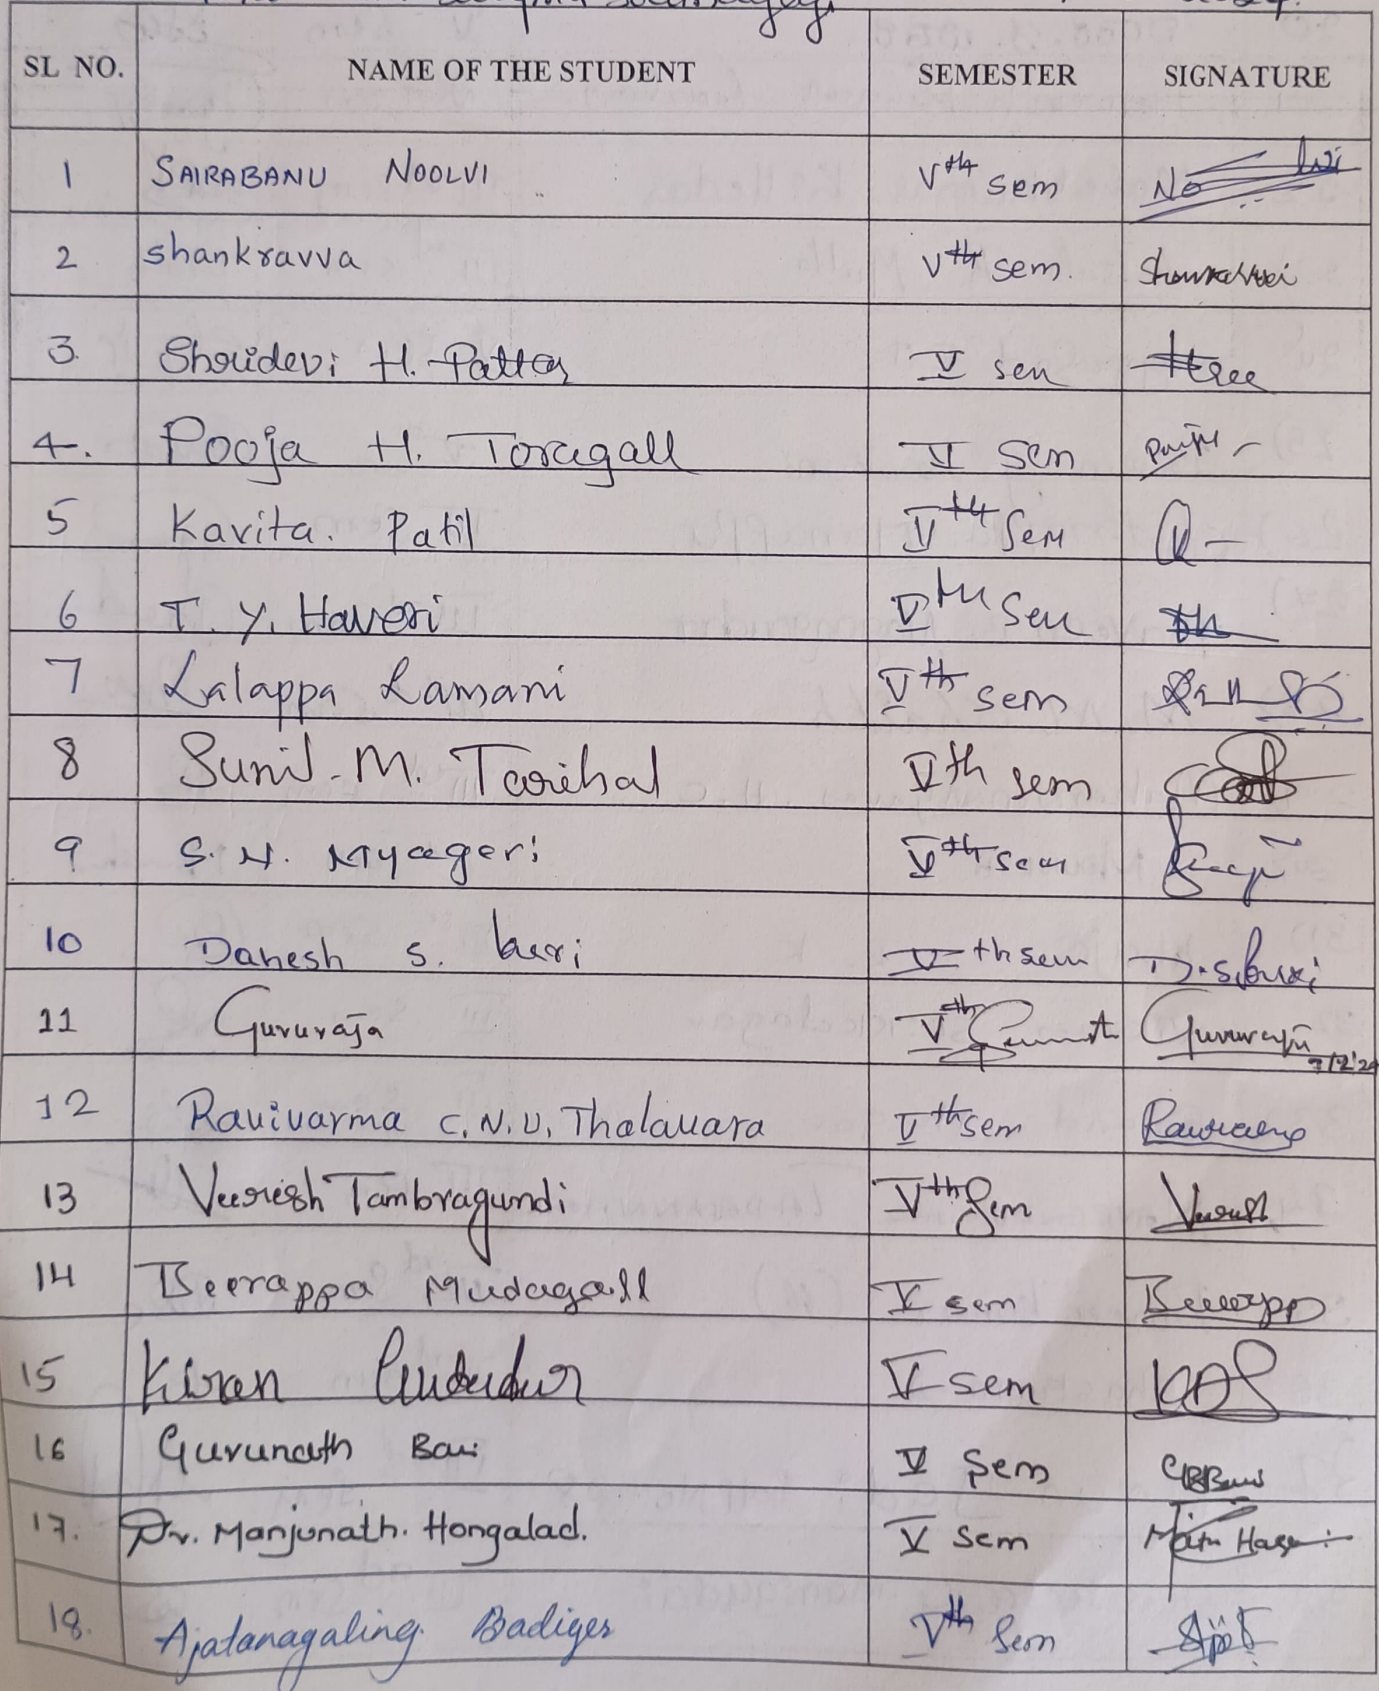 SL NO. NAME OF THE STUDENT SEMESTER SIGNATURE
1 SAIRABANU NOOLVI Vth sem No lvi
2 shankravva Vth sem.
3 Shridevi H. Pattar V sem
4. Pooja H. Toragall V sem
5 Kavita. Patil Vth Sem
6 T. Y. Haveri Vth Sem
7 Lalappa Lamani Vth sem
8 Sunil. M. Tarihal Vth sem
9 S. N. Myageri Vth sem
10 Danesh S. buri Vth sem D.S.buri
11 Gururaja Vth Gururaja
12 Ravivarma C.N.V. Thalavara Vth sem
13 Veeresh Tambragundi Vth Sem
14 Beerappa Mudagall V sem
15 Kiran V sem
16 Gurunath V Sem
17. Dr. Manjunath. Hongalad. V Sem
18. Ajatanagaling. Badiger Vth Sem